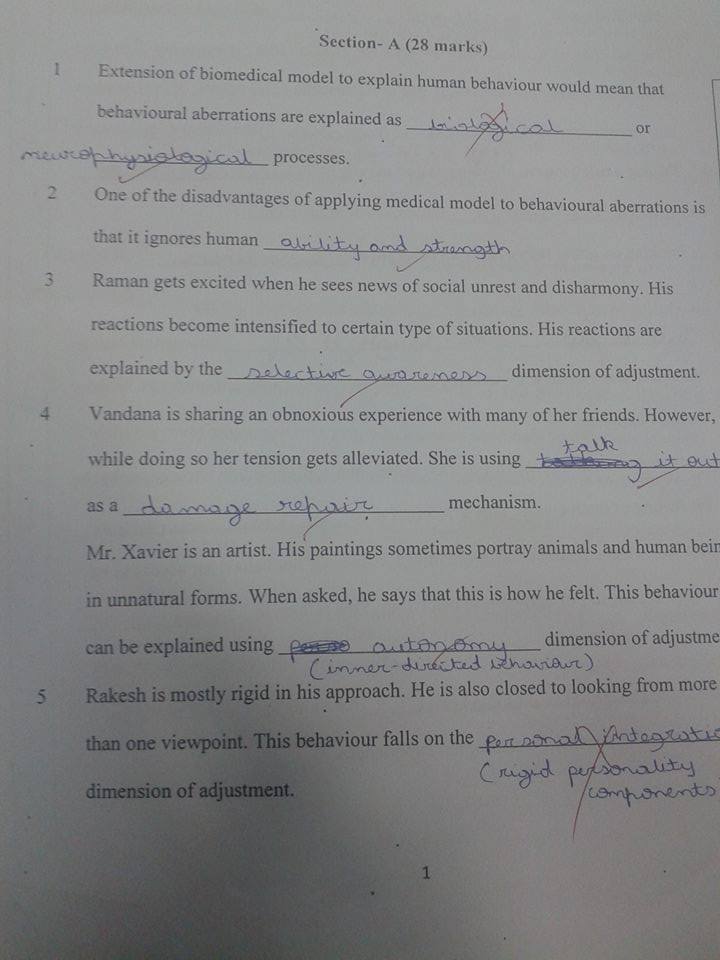 Section- A (28 marks)
1 Extension of biomedical model to explain human behaviour would mean that
behavioural aberrations are explained as biological or
neurophysiological processes.
2 One of the disadvantages of applying medical model to behavioural aberrations is
that it ignores human ability and strength
3 Raman gets excited when he sees news of social unrest and disharmony. His
reactions become intensified to certain type of situations. His reactions are
explained by the selective awareness dimension of adjustment.
4 Vandana is sharing an obnoxious experience with many of her friends. However,
talk
while doing so her tension gets alleviated. She is using it out
as a damage repair mechanism.
Mr. Xavier is an artist. His paintings sometimes portray animals and human bein
in unnatural forms. When asked, he says that this is how he felt. This behaviour
can be explained using autonomy dimension of adjustme
(inner-directed behaviour)
5 Rakesh is mostly rigid in his approach. He is also closed to looking from more
than one viewpoint. This behaviour falls on the personal integratio
(rigid personality
dimension of adjustment. components
1